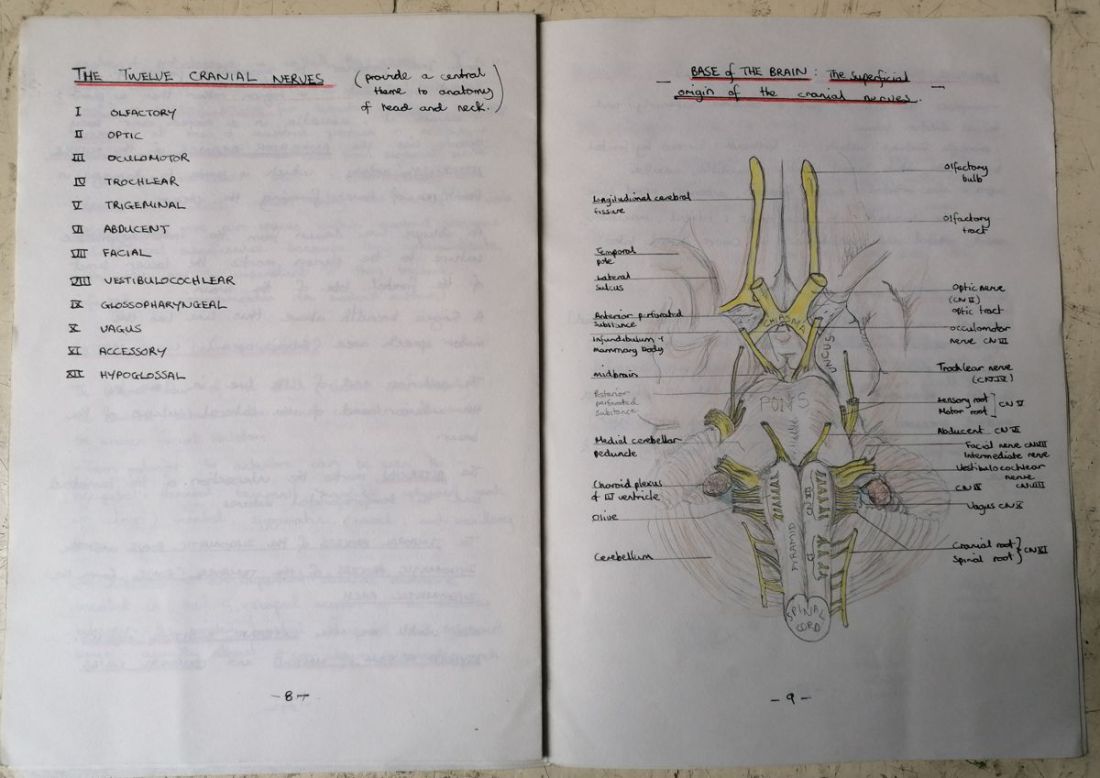 THE TWELVE CRANIAL NERVES
(provide a central
theme to anatomy
of head and neck.)
I OLFACTORY
II OPTIC
III OCULOMOTOR
IV TROCHLEAR
V TRIGEMINAL
VI ABDUCENT
VII FACIAL
VIII VESTIBULOCOCHLEAR
IX GLOSSOPHARYNGEAL
X VAGUS
XI ACCESSORY
XII HYPOGLOSSAL
- 8 -
BASE of THE BRAIN : The Superficial
origin of the cranial nerves.
Longitudional cerebral
fissure
Temporal
pole
Lateral
Sulcus
Anterior perforated
substance
Infundibulum +
Mammary Body
midbrain
Posterior
perforated
substance
Medial cerebellar
peduncle
Choroid plexus
of IV ventricle
Olive
Cerebellum
CHIASMA
UNCUS
PONS
PYRAMID
CN XII
C1
SPINAL
CORD
Olfactory
bulb
Olfactory
tract
Optic nerve
(CN II)
Optic tract
Occulomotor
nerve CN III
Trochlear nerve
(CN IV)
Sensory root
Motor root
CN V
Abducent CN VI
Facial nerve CN VII
Intermediate nerve
Vestibulocochlear
nerve
CN VIII
CN IX
Vagus CN X
Cranial root
Spinal root
CN XI
- 9 -